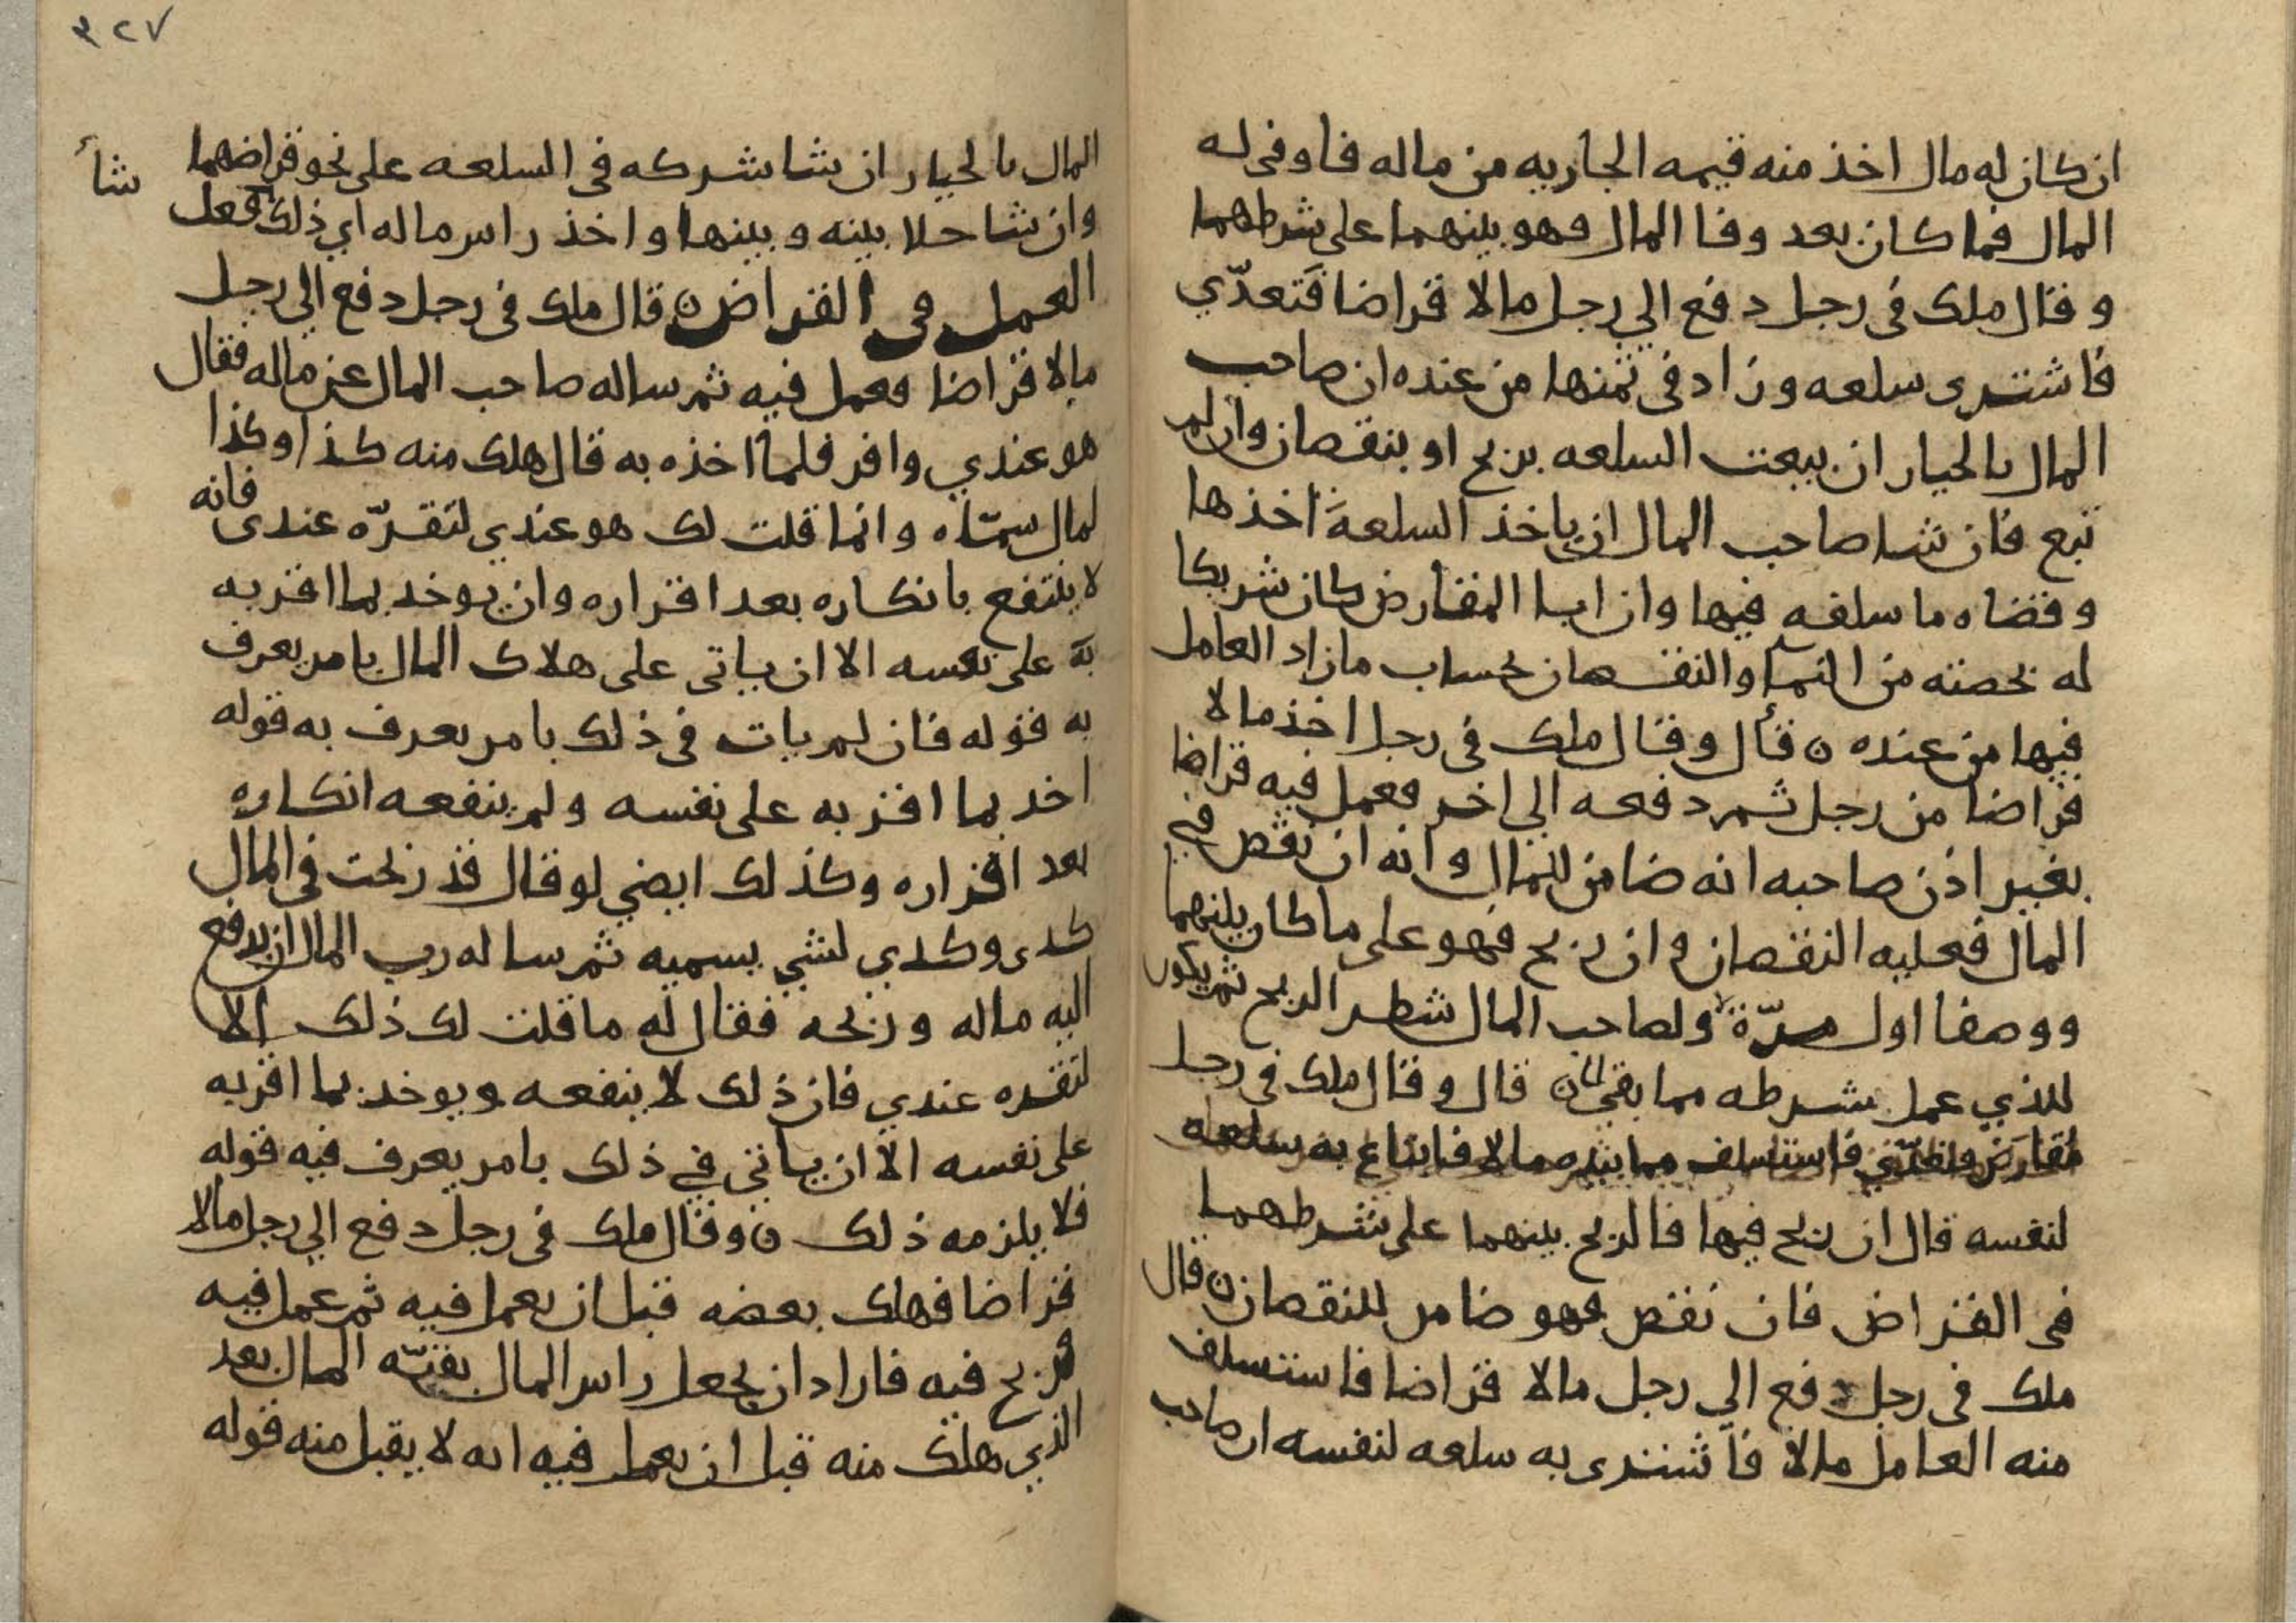 ان كان له مال اخذ منه قيمه الجاريه من ماله فاوفى له
المال فما كان بعد وفا المال فهو بينهما على شرطهما
و قال ملك فى رجل دفع الي رجل مالا قراضا فَتعدّي
فاشترى سلعه وزاد فى ثمنها من عنده ان صاحب
المال بالخيار ان بيعت السلعه بربح او بنقصان وان لم
تبع فان شا صاحب المال ان ياخذ السلعةَ اخذها
وقضاه ما سلفه فيها وان ابا المقارض كان شريكا
له بحصته من النما والنقصان بحساب ما زاد العامل
فيها من عنده ن قال وقال ملك فى رجل اخذ مالا
قراضا من رجل ثم دفعه الي اخر فعمل فيه قراضا
بغير اذن صاحبه انه ضامن للمال وانه ان نقص في
المال فعليه النقصان وان ربح فهو على ما كان بينهما
ووصفا اول مرّة ولصاحب المال شطر الربح ثم يكون
للذي عمل بشرطه مما بقي ن قال وقال ملك فى رجل
فاستسلف مما بيده مالا فابتاع به سلعه
لنفسه قال ان ربح فيها فالربح بينهما على شرطهما
فى القراض فان نقص فهو ضامن للنقصان ن قال
ملك فى رجل دفع الي رجل مالا قراضا فاستسلف
منه العامل مالا فاشترى به سلعه لنفسه ان صاحب
٣٢٧
المال بالخيار ان شا شركه فى السلعه على نحو قراضهما
شأ
وان شا خلا بينه وبينها واخذ راس ماله اي ذلك فعل
العمل فى القراض ن قال ملك فى رجل دفع الي رجل
مالا قراضا فعمل فيه ثم ساله صاحب المال عن ماله فقال
هو عندي وافر فلما اخذه به قال هلك منه كذا وكذا
لمال سمّاه وانما قلت لك هو عندي لتقرّه عندى فانه
لا ينتفع بانكاره بعد اقراره وان يوخذ بما اقر به
به على نفسه الا ان ياتى على هلاك المال بامر يعرف
به قوله فان لم يات فى ذلك بامر يعرف به قوله
اخد بما اقر به على نفسه ولم ينفعه انكاره
بعد اقراره وكذلك ايضي لو قال قد ربحت فى المال
كدى وكدي لشي يسميه ثم ساله رب المال ان يدفع
اليه ماله وربحه فقال له ما قلت لك ذلك الا
لتقره عندي فان ذلك لا ينفعه ويوخد بما اقر به
على نفسه الا ان ياتي في ذلك بامر يعرف فيه قوله
فلا يلزمه ذلك ن وقال ملك فى رجل دفع الي رجل مالا
قراضا فهلك بعضه قبل ان يعمل فيه ثم عمل فيه
فربح فيه فاراد ان يجعل راس المال بقيّه المال بعد
الذي هلك منه قبل ان يعمل فيه انه لا يقبل منه قوله